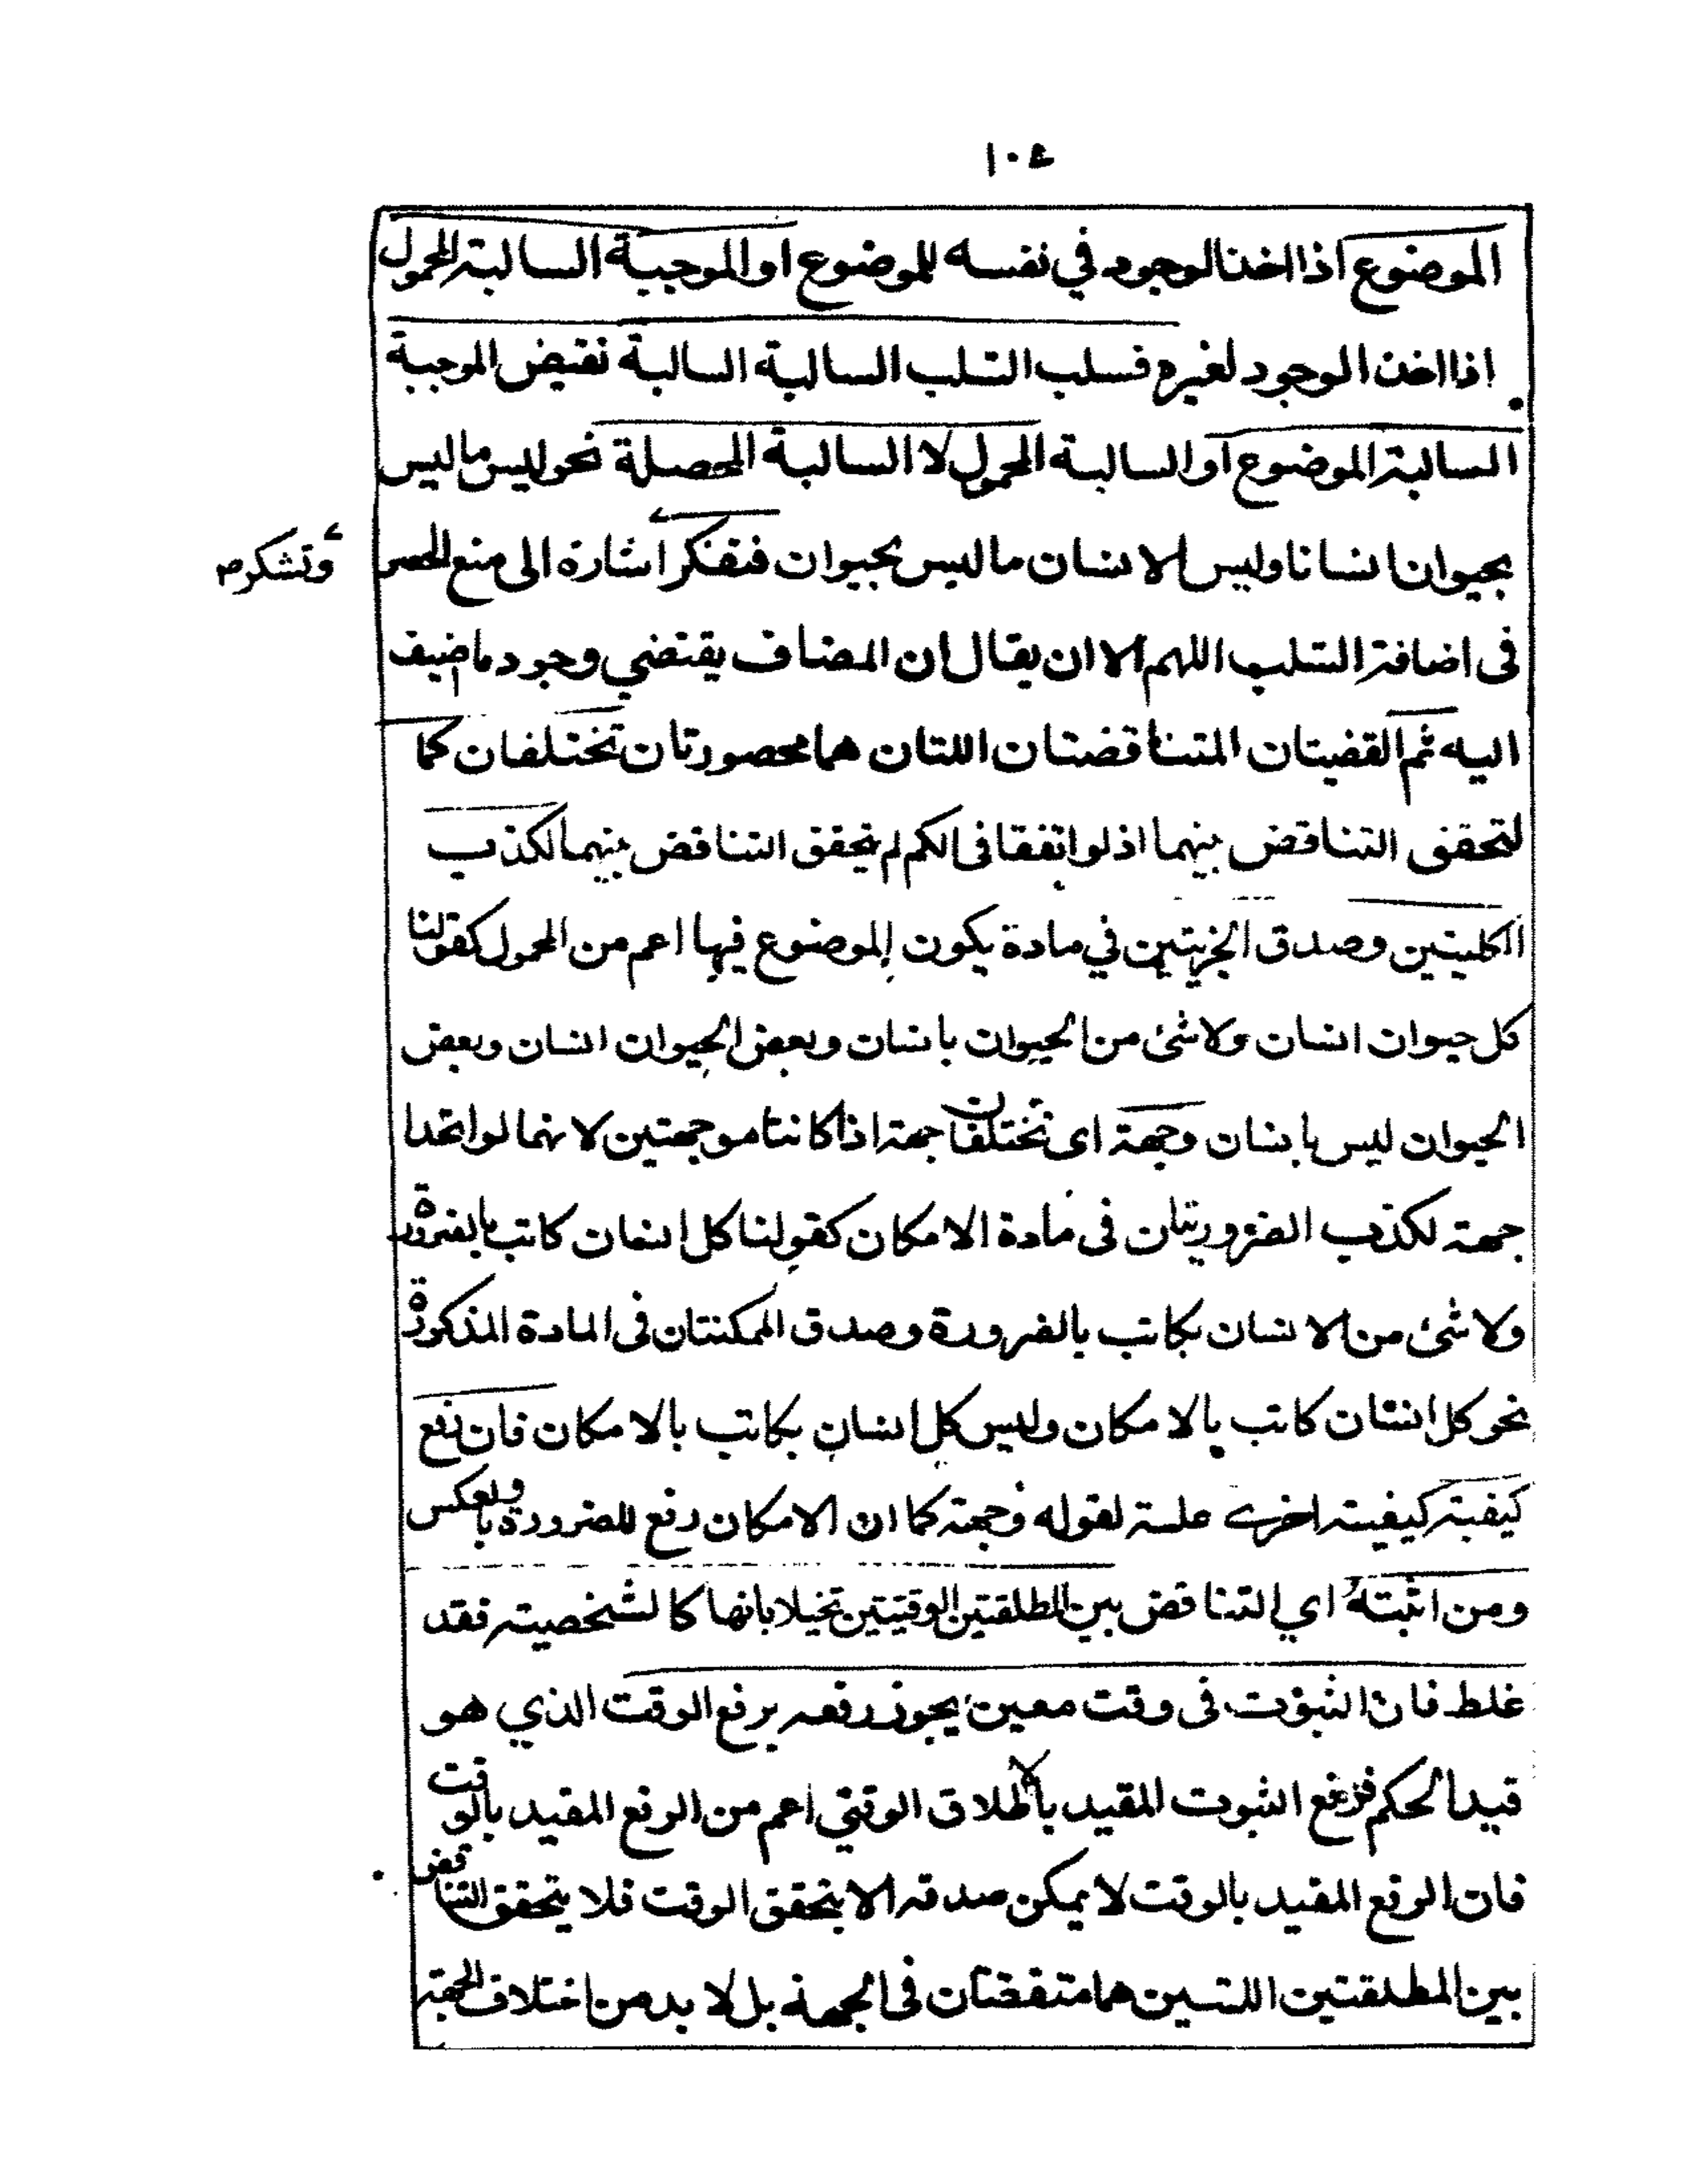 ١٠٤
الموضوع اذا اخذ الوجود في نفسه للموضوع او الموجبة السالبة المحمول
اذا اخذ الوجود لغيره فسلب السلب السالبة السالبة نقيض الموجبة
السالبة الموضوع او السالبة المحمول لا السالبة المحصلة نحو ليس ما ليس
بحيوان انسانا وليس الانسان ما ليس بحيوان فتفكر اشارة الى منع الحصر
وتشكرم
فى اضافة السلب اللهم الا ان يقال ان المضاف يقتضي وجود ما اضيف
اليه ثم القضيتان المتناقضتان اللتان هما محصورتان تختلفان كما
لتحقق التناقض بينهما اذ لو اتفقا فى الكم لم يتحقق التناقض بينهما لكذب
الكليتين وصدق الجزئيتين في مادة يكون الموضوع فيها اعم من المحمول كقولنا
كل حيوان انسان ولا شئ من الحيوان بانسان وبعض الحيوان انسان وبعض
الحيوان ليس بانسان وجهة اى تختلفان جهة اذا كانتا موجهتين لانهما لو اتحدا
جهة لكذب الضروريتان فى مادة الامكان كقولنا كل انسان كاتب بالضرورة
ولا شئ من الانسان بكاتب بالضرورة وصدق الممكنتان فى المادة المذكورة
نحو كل انسان كاتب بالامكان وليس كل انسان بكاتب بالامكان فان رفع
كيفية كيفية اخرى علة لقوله وجهة كما ان الامكان رفع للضرورة وبالعكس
ومن اثبته اي التناقض بين المطلقتين الوقتيتين تخيلا بانها كالشخصية فقد
غلط فان الثبوت فى وقت معين يجوز رفعه برفع الوقت الذي هو
قيد الحكم فرفع الثبوت المقيد بالاطلاق الوقتي اعم من الرفع المقيد بالوقت
فان الرفع المقيد بالوقت لا يمكن صدقه الا بتحقق الوقت فلا يتحقق التناقض
بين المطلقتين اللتين هما متفقتان فى الجهة بل لا بد من اختلاف الجهة